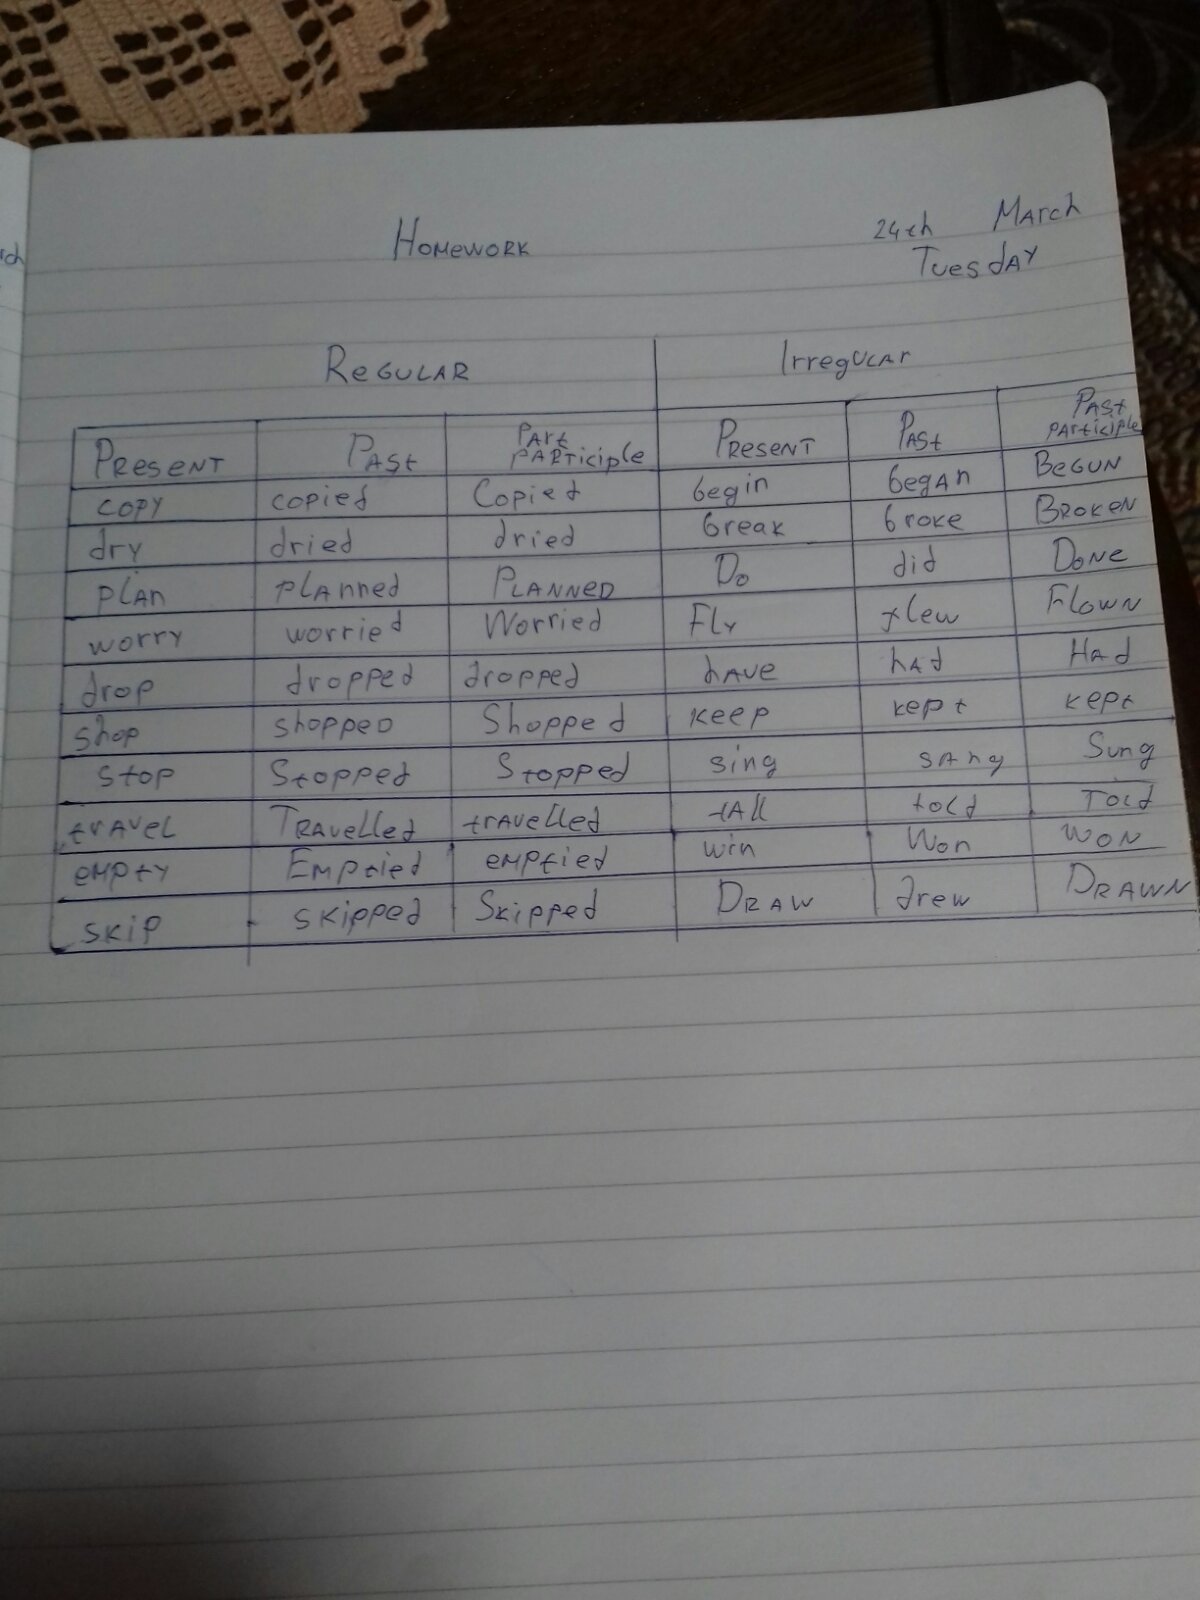 Homework
24th March
Tuesday
Regular Irregular
Present Past Part participle Present Past Past participle
copy copied Copied begin began Begun
dry dried dried break broke Broken
plan planned Planned Do did Done
worry worried Worried Fly flew Flown
drop dropped dropped have had Had
shop shopped Shopped keep kept kept
stop Stopped Stopped sing sang Sung
travel Travelled travelled tAll told Told
empty Emptied emptied win Won won
skip skipped Skipped Draw drew Drawn